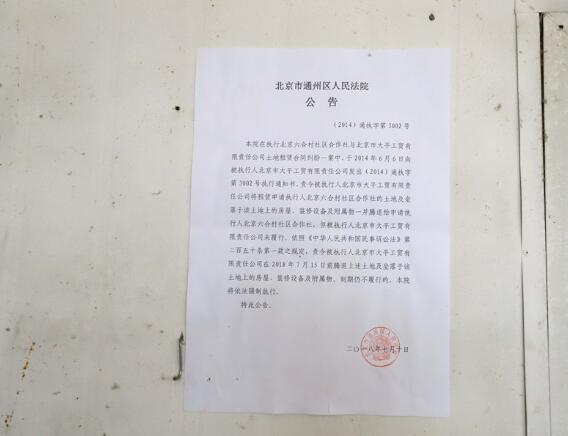 北京市通州区人民法院
公 告
（2014）通执字第3002号
本院在执行北京六合村社区合作社与北京市大平工贸有
限责任公司土地租赁合同纠纷一案中，于2014年6月6日向
被执行人北京市大平工贸有限责任公司发出（2014）通执字
第3002号执行通知书，责令被执行人北京市大平工贸有限责
任公司将租赁申请执行人北京六合村社区合作社的土地及坐
落于该土地上的房屋、装修设备及附属物一并腾退给申请执
行人北京六合村社区合作社，但被执行人北京市大平工贸有
限责任公司未履行。依照《中华人民共和国民事诉讼法》第
二百五十条第一款之规定，责令被执行人北京市大平工贸有
限责任公司在2018年7月15日前腾退上述土地及坐落于该
土地上的房屋、装修设备及附属物。到期仍不履行的，本院
将依法强制执行。
特此公告。
二〇一八年七月十日